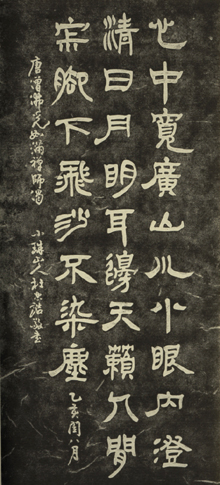 心中寬廣山川小眼內澄
清日月明耳邊天籟人間
脚下飛沙不染塵
乙亥閏八月
唐僧佛光如滿禪師句
山人杜忠誥敬書